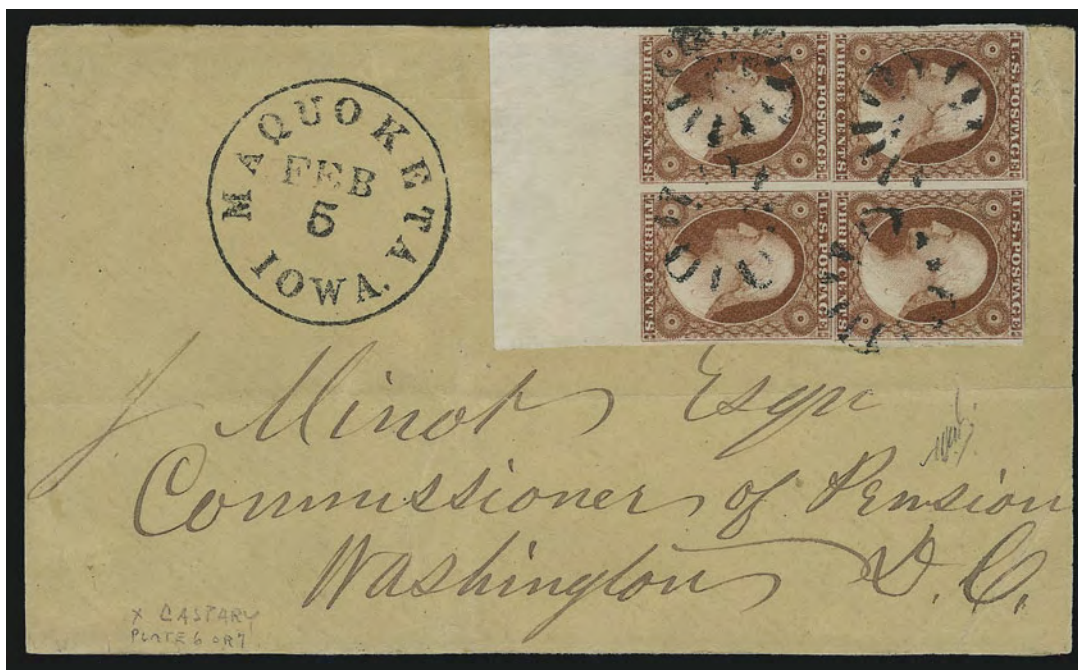 MAQUOKETA
FEB
5
IOWA.
U.S. POSTAGE
THREE CENTS
U.S. POSTAGE
THREE CENTS
U.S. POSTAGE
THREE CENTS
U.S. POSTAGE
THREE CENTS
J Minot Esqr
Commissioner of Pension
Washington D.C.
X CASPARY
PLATE 6 OR 7